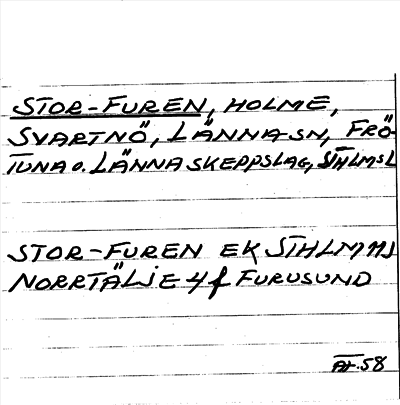 STOR-FUREN, HOLME,
SVARTNÖ, LÄNNA SN, FRÖ-
TUNA O. LÄNNA SKEPPSLAG, STHLMS L
STOR-FUREN EK STHLM
NORRTÄLJE 4 f FURUSUND
58